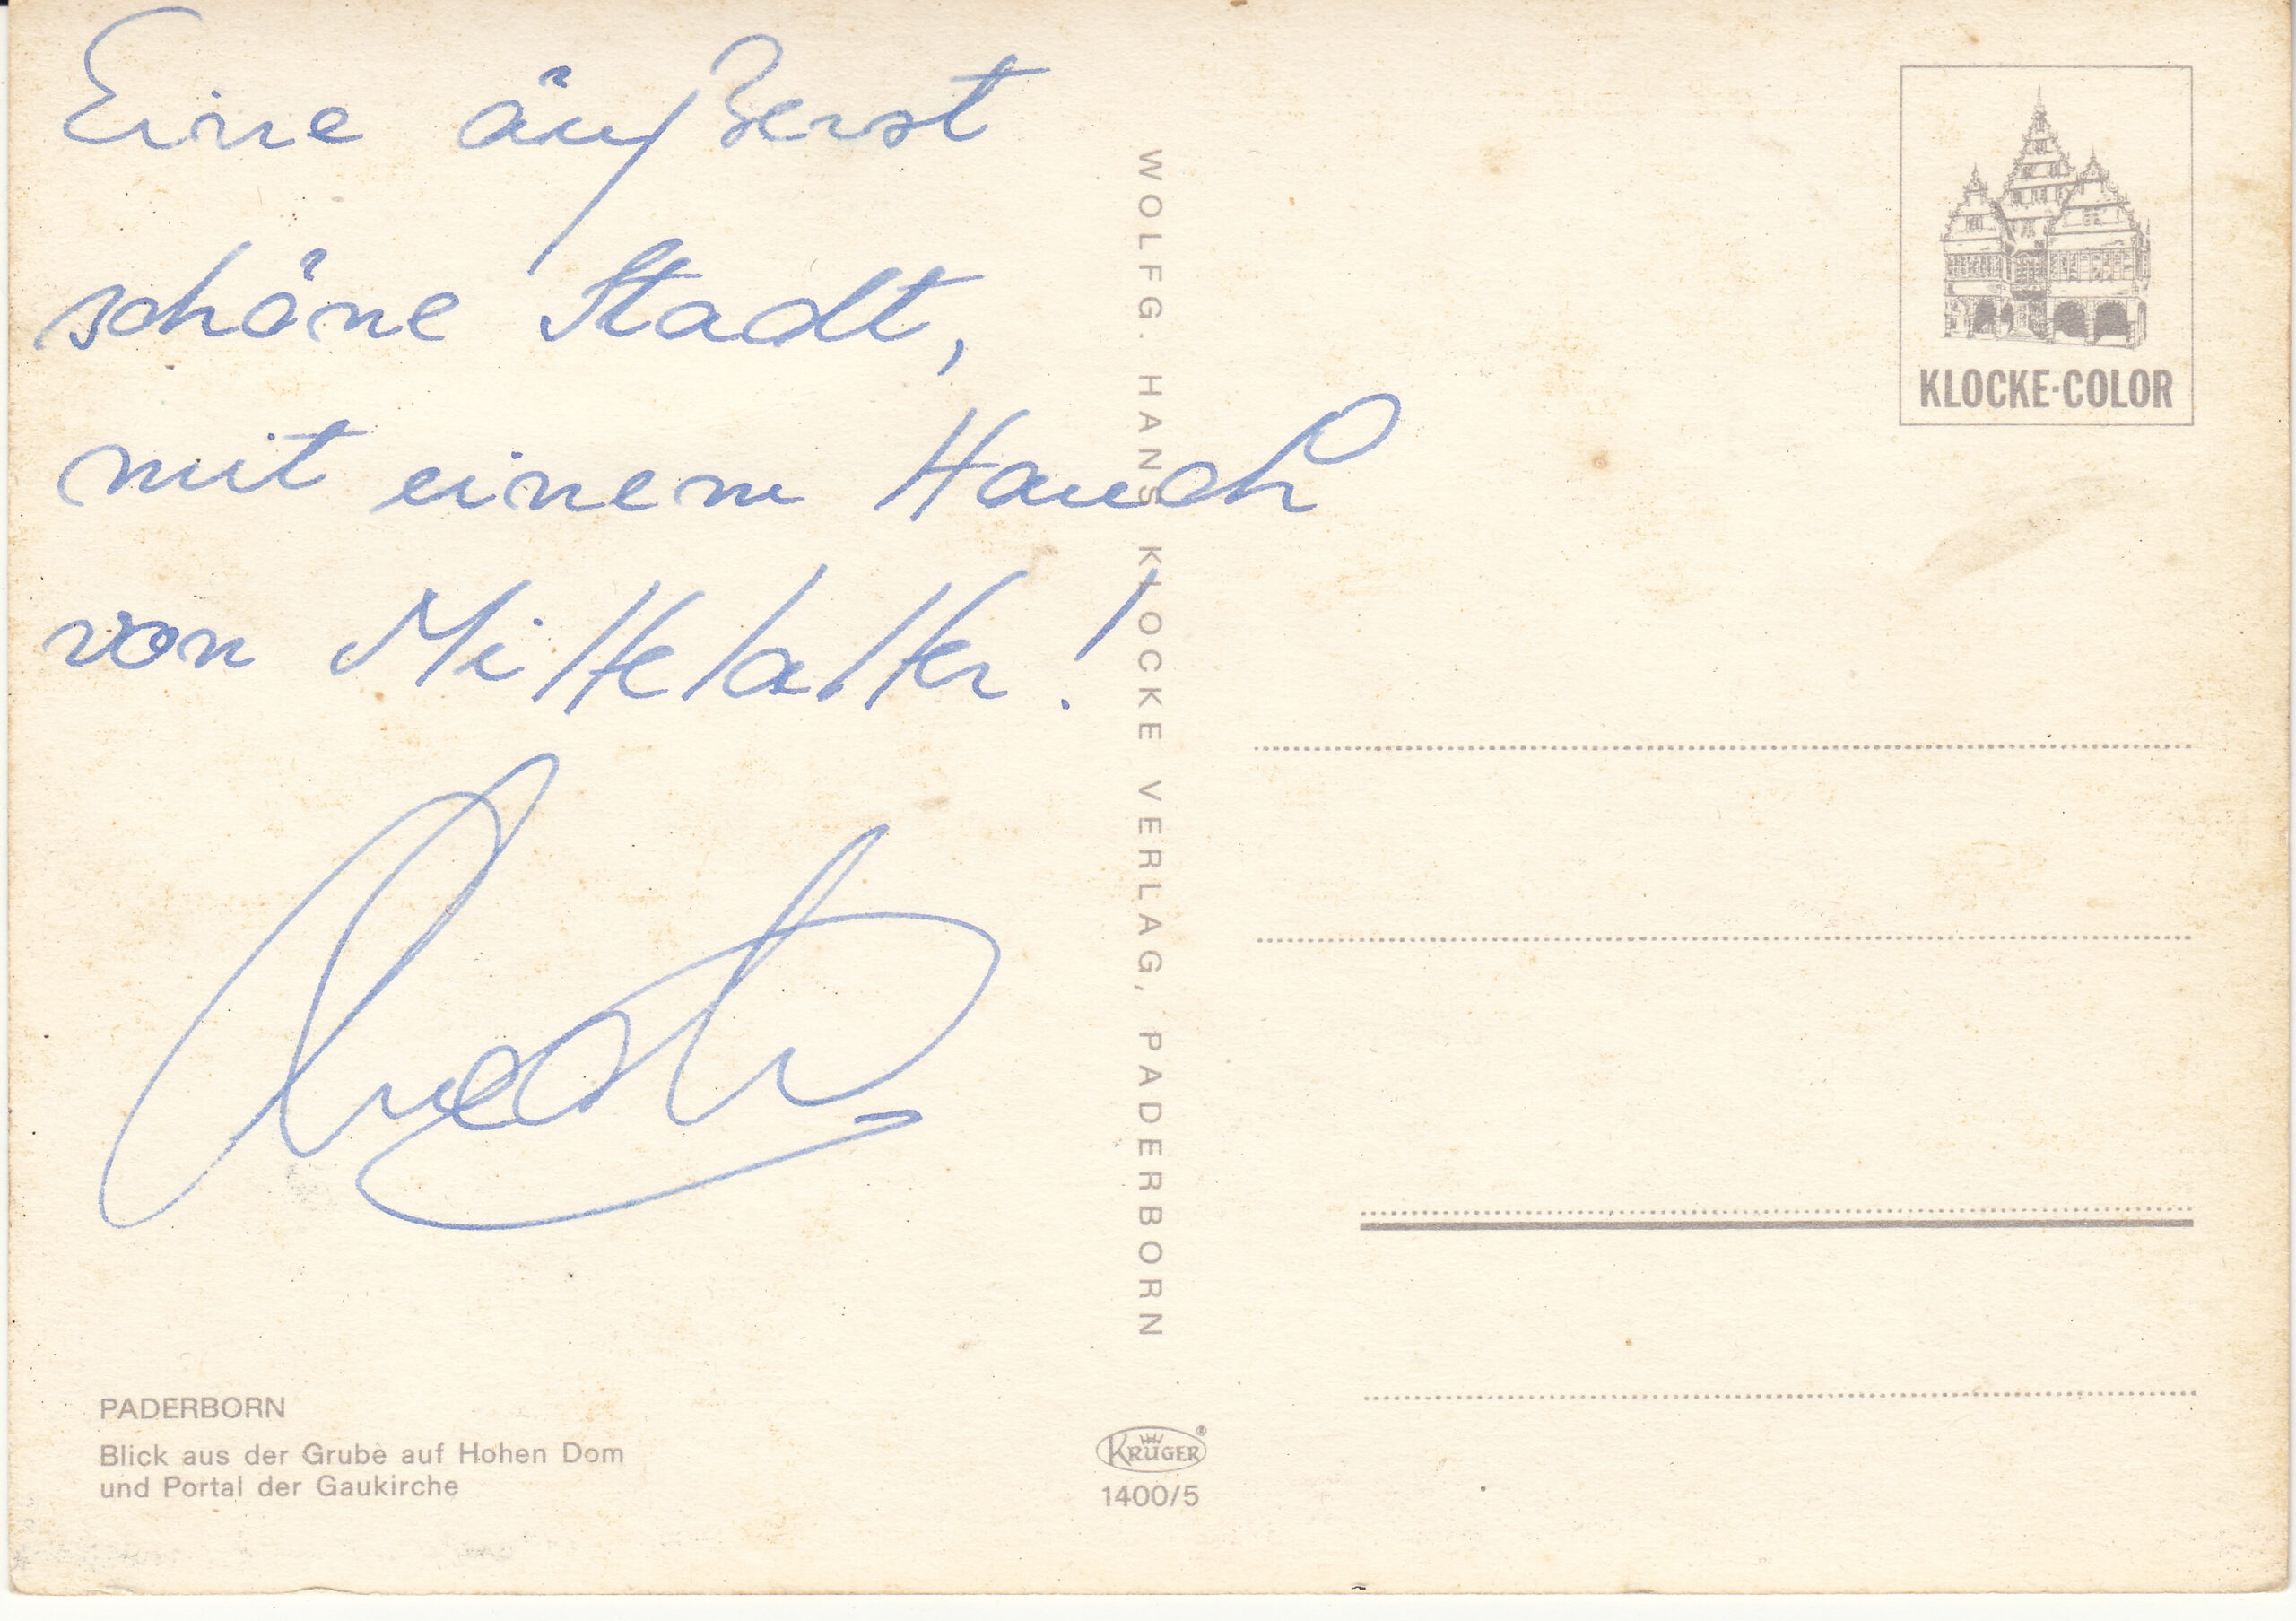 Eine äußerst
schöne Stadt,
mit einem Hauch
von Mittelalter!
PADERBORN
Blick aus der Grube auf Hohen Dom
und Portal der Gaukirche
WOLFG. HANS KLOCKE VERLAG, PADERBORN
KRÜGER®
1400/5
KLOCKE-COLOR